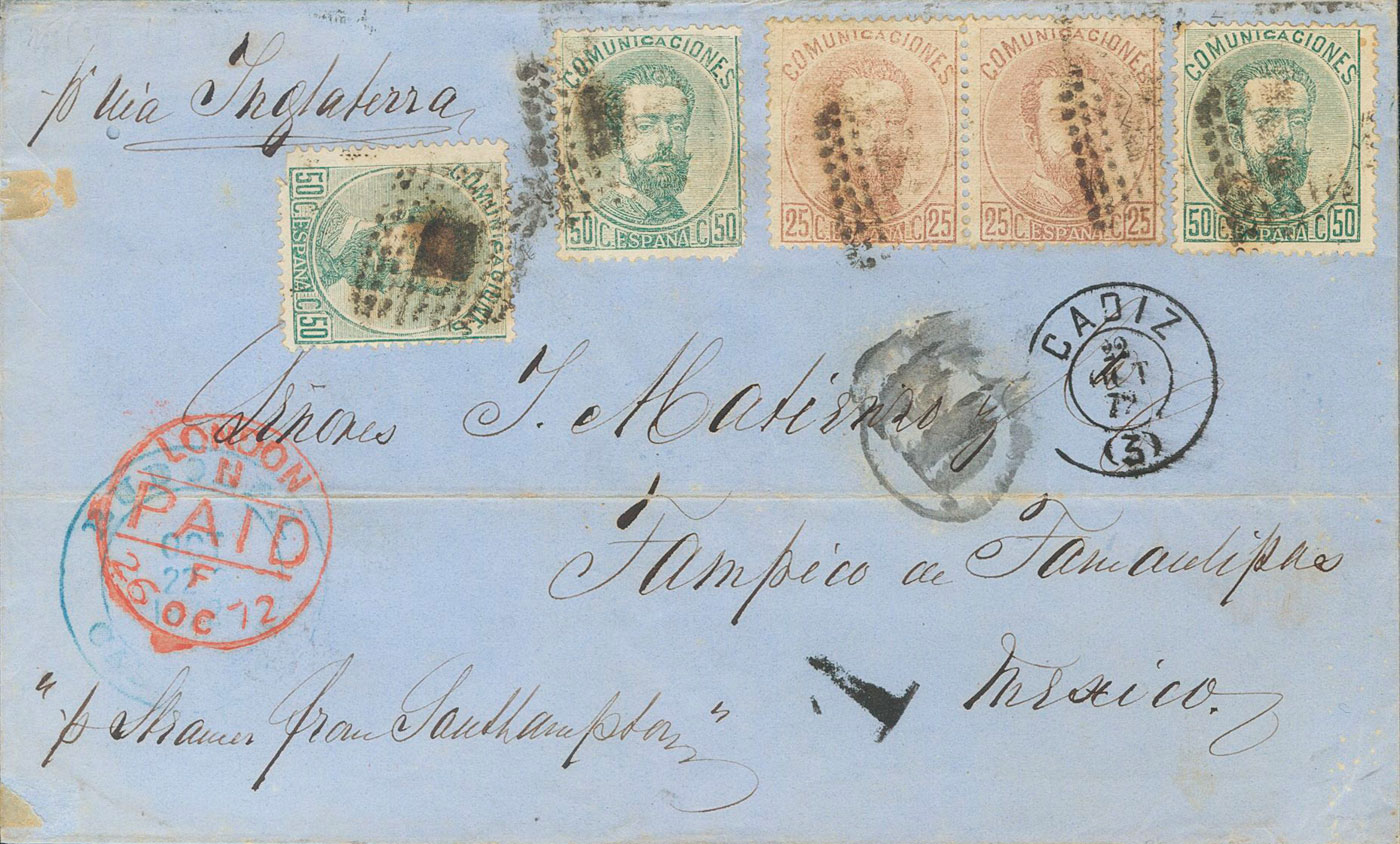 p. via Inglaterra
COMUNICACIONES
50 C. ESPAÑA C. 50
COMUNICACIONES
50 C. ESPAÑA C. 50
COMUNICACIONES
25 C. ESPAÑA C. 25
COMUNICACIONES
25 C. ESPAÑA C. 25
COMUNICACIONES
50 C. ESPAÑA C. 50
CADIZ
22
OCT
72
(3)
Señores J. Matienzo y
Tampico de Tamaulipas
Mexico.
LONDON
N
PAID
F
26 OC 72
OCT
22
"p Steamer from Southampton"